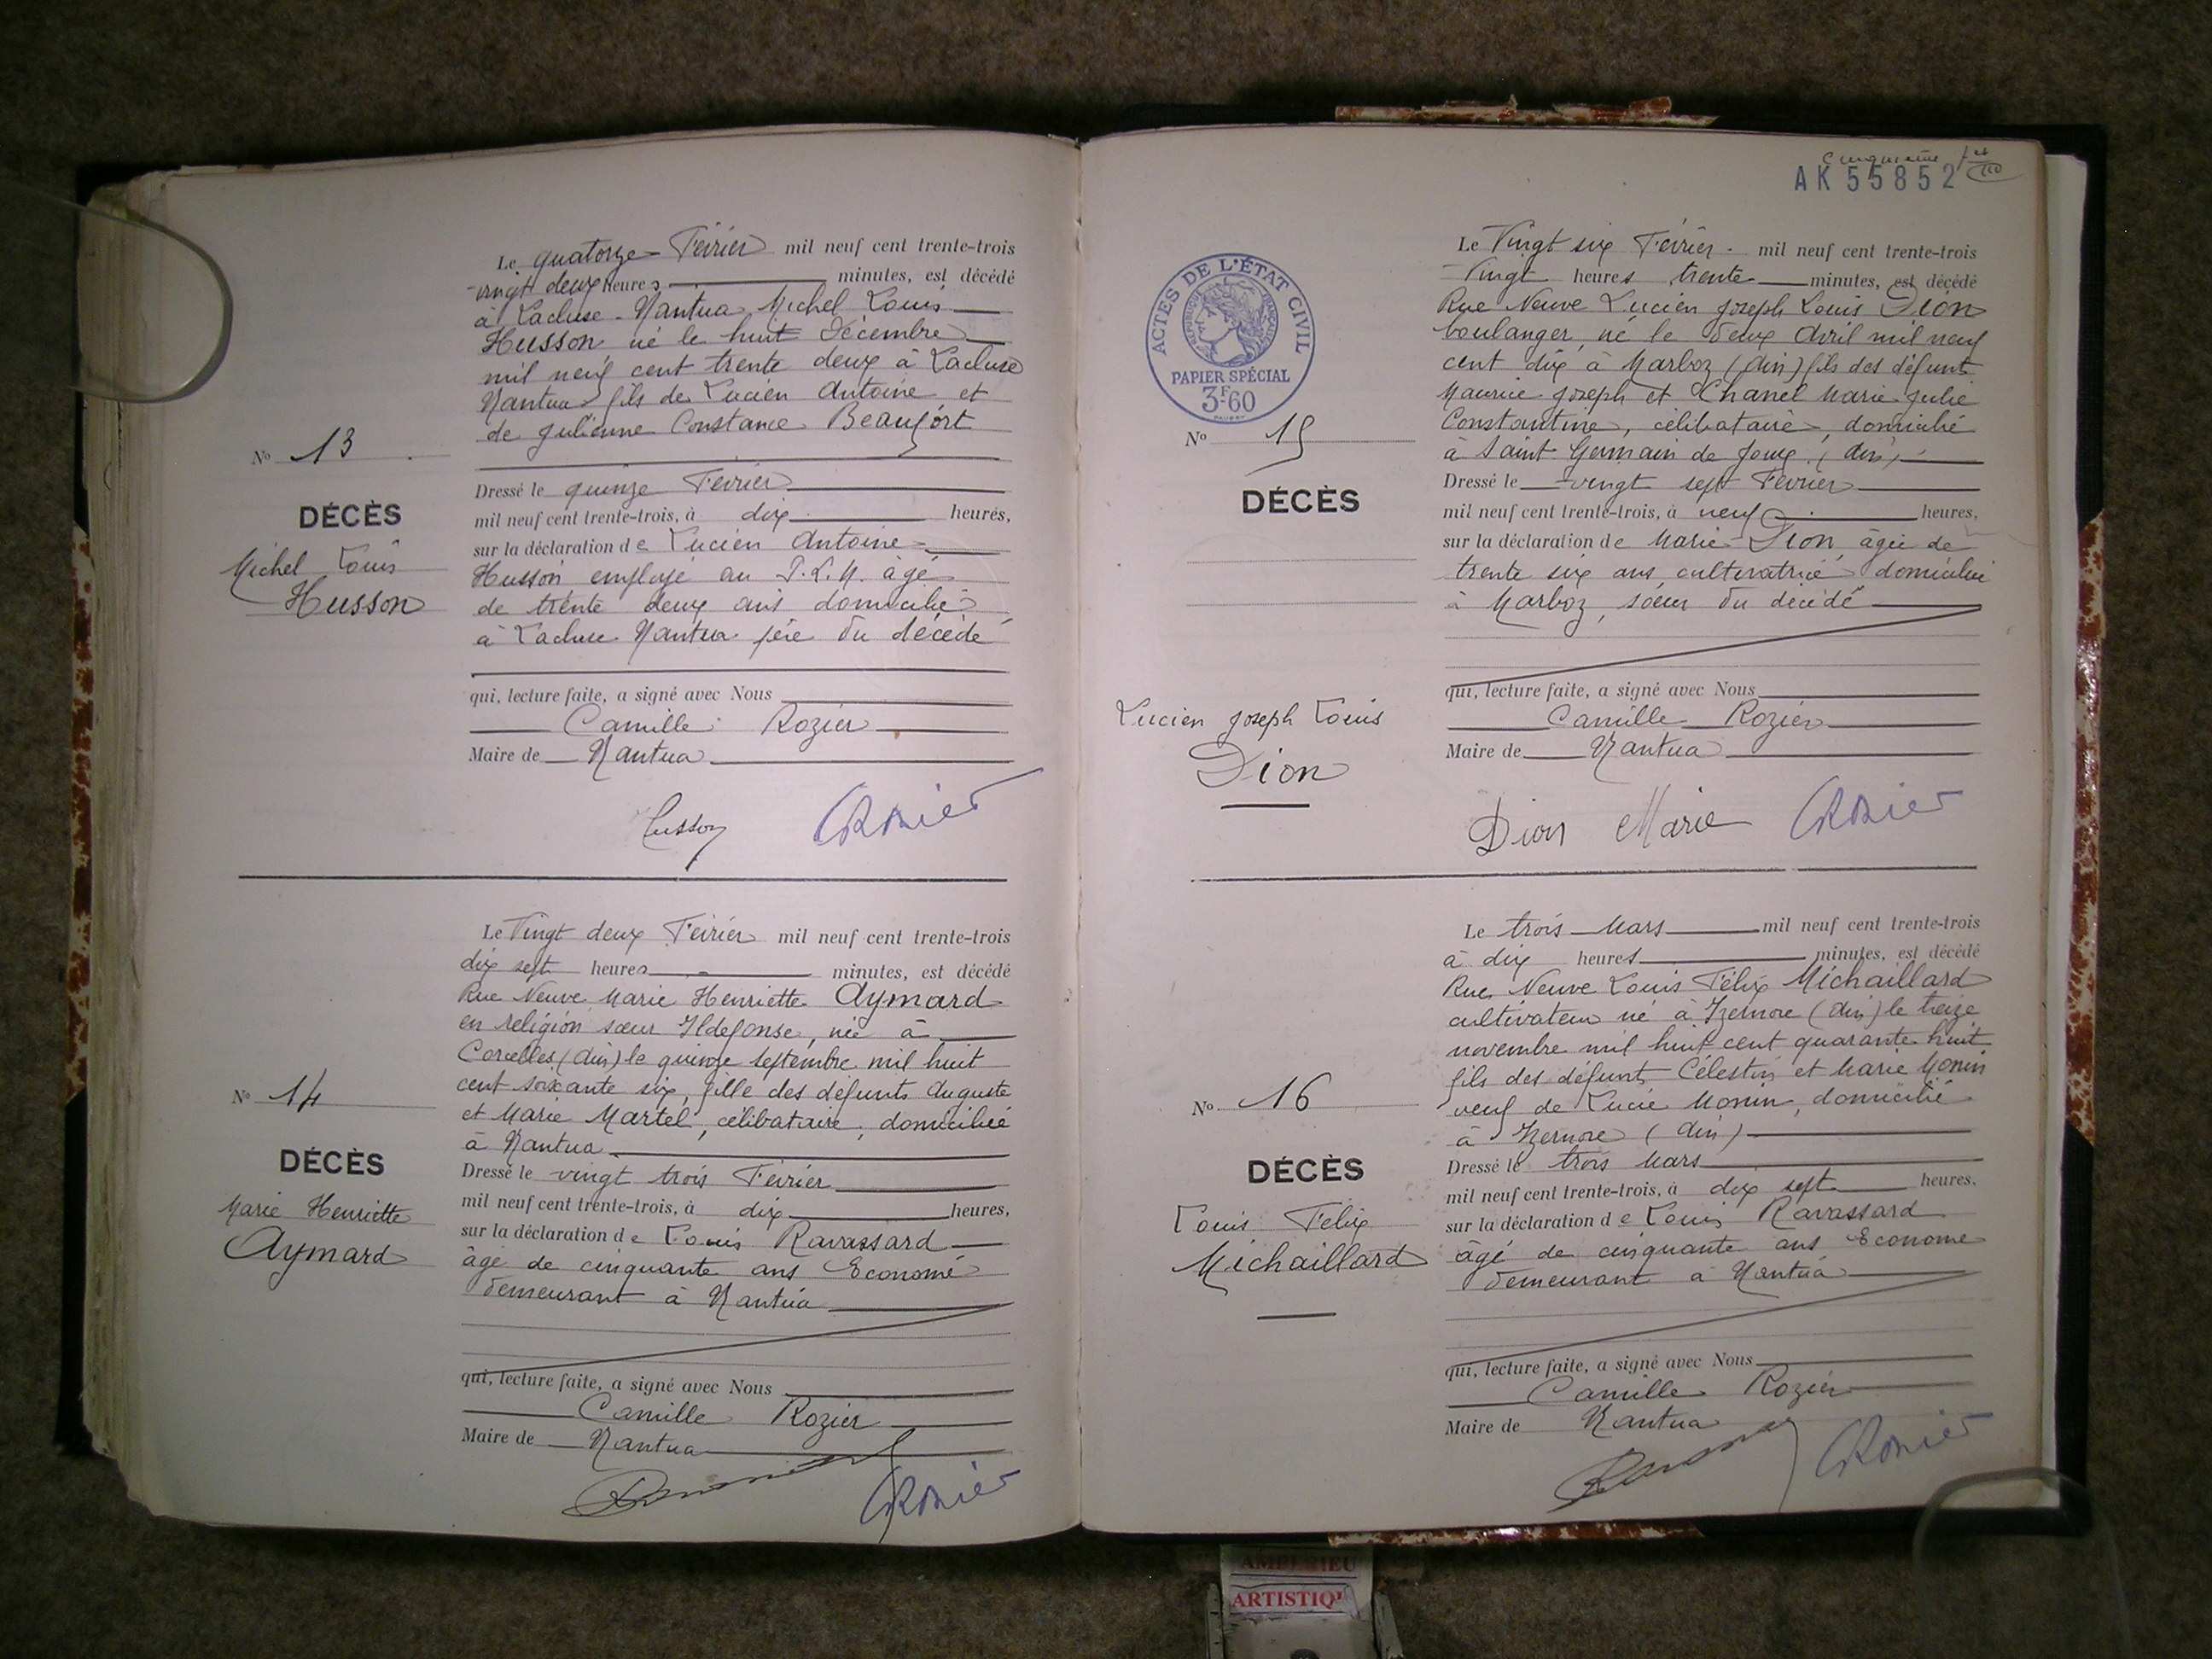 Le quatorze Février mil neuf cent trente-trois
vingt deux heures minutes, est décédé
à Lacluse-Nantua Michel Louis
Husson né le huit Décembre
mil neuf cent trente deux à Lacluse
Nantua fils de Lucien Antoine et
de Julienne Constance Beaufort
No 13
DÉCÈS
Michel Louis
Husson
Dressé le quinze Février
mil neuf cent trente-trois, à dix heures,
sur la déclaration de Lucien Antoine
Husson employé au P.L.M. âgé
de trente deux ans domicilié
à Lacluse Nantua père du décédé
qui, lecture faite, a signé avec Nous
Camille Rozier
Maire de Nantua
Husson CRozier
Le Vingt deux Février mil neuf cent trente-trois
dix sept heures minutes, est décédé
Rue Neuve Marie Henriette Aymard
en religion sœur Ildefonse, née à
Corcelles (Ain) le quinze septembre mil huit
cent soixante six, fille des défunts Auguste
et Marie Martel, célibataire, domiciliée
à Nantua
No 14
DÉCÈS
Marie Henriette
Aymard
Dressé le vingt trois Février
mil neuf cent trente-trois, à dix heures,
sur la déclaration de Louis Ravassard
âgé de cinquante ans Econome
demeurant à Nantua
qui, lecture faite, a signé avec Nous
Camille Rozier
Maire de Nantua
CRozier
cinquième
AK 55852
ACTES DE L'ÉTAT CIVIL
PAPIER SPÉCIAL
3F60
Le Vingt six Février mil neuf cent trente-trois
Vingt heures trente minutes, est décédé
Rue Neuve Lucien Joseph Louis Dion
boulanger, né le deux Avril mil neuf
cent dix à Marboz (Ain) fils des défunts
Maurice Joseph et Chanel Marie Julie
Constantine, célibataire, domicilié
à Saint Germain de Joux (Ain)
No 15
DÉCÈS
Lucien Joseph Louis
Dion
Dressé le vingt sept Février
mil neuf cent trente-trois, à neuf heures,
sur la déclaration de Marie Dion âgée de
trente six ans, cultivatrice domiciliée
à Marboz, sœur du décédé
qui, lecture faite, a signé avec Nous
Camille Rozier
Maire de Nantua
Dion Marie CRozier
Le trois Mars mil neuf cent trente-trois
à dix heures minutes, est décédé
Rue Neuve Louis Félix Michaillard
cultivateur né à Izernore (Ain) le treize
novembre mil huit cent quarante huit
fils des défunts Célestin et Marie Monin
veuf de Lucie Monin, domicilié
à Izernore (Ain)
No 16
DÉCÈS
Louis Félix
Michaillard
Dressé le trois Mars
mil neuf cent trente-trois, à dix sept heures,
sur la déclaration de Louis Ravassard
âgé de cinquante ans Econome
demeurant à Nantua
qui, lecture faite, a signé avec Nous
Camille Rozier
Maire de Nantua
CRozier
ARTISTIQ